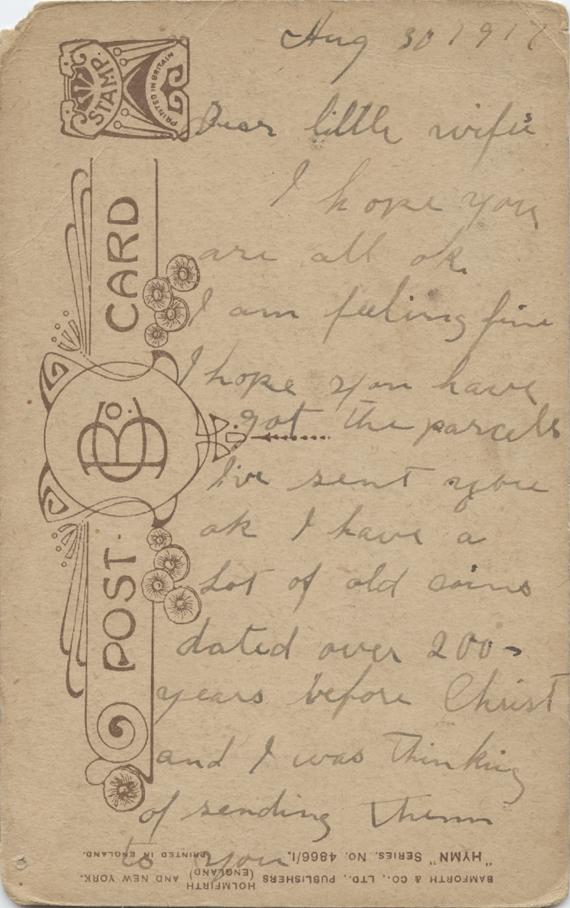 Aug 30 1917
Dear little wifie
I hope you
are all ok
I am feeling fine
I hope you have
got the parcels
I've sent you
ok I have a
Lot of old coins
dated over 200-
years before Christ
and I was thinking
of sending them
to you
STAMP.
PRINTED IN BRITAIN
POST CARD
B & Co.
"HYMN" SERIES. NO. 4866/1.
BAMFORTH & CO., LTD., PUBLISHERS
HOLMFIRTH (ENGLAND) AND NEW YORK.
PRINTED IN ENGLAND.